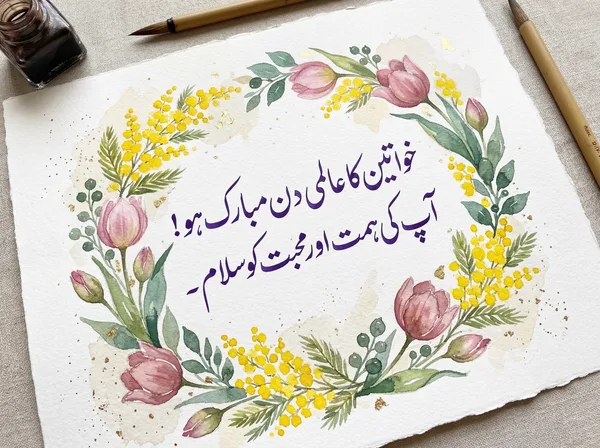 خواتین کا عالمی دن مبارک ہو!
آپ کی ہمت اور محبت کو سلام۔